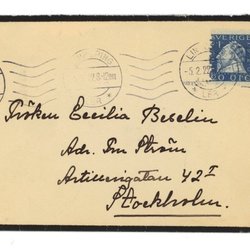 SVERIGE
20 ÖRE
-5.2.22
Fröken Cecilia Beselin
Adr. Fru Ström
Artillerigatan 42 I
Stockholm.